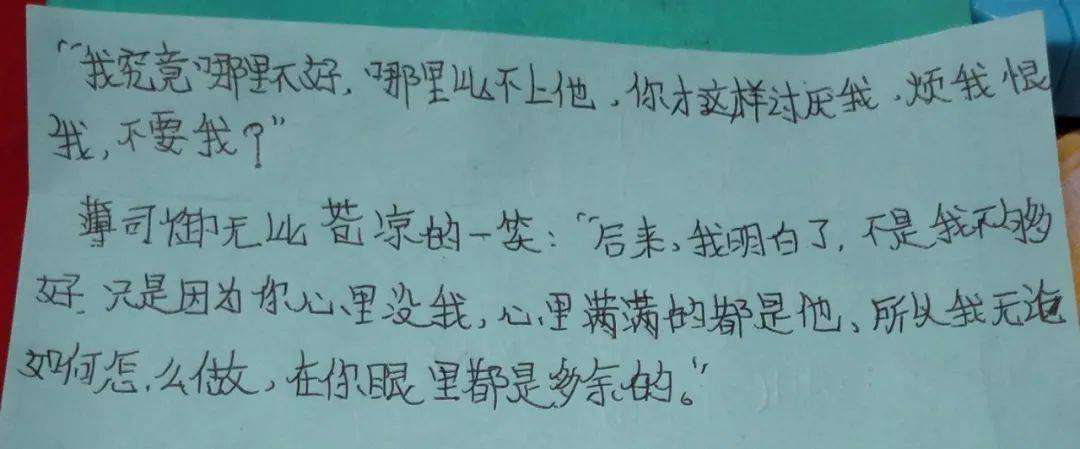 “我究竟哪里不好，哪里比不上他，你才这样讨厌我，烦我恨
我，不要我？”
薄司御无比苍凉的一笑：“后来，我明白了，不是我不够
好，只是因为你心里没我，心里满满的都是他，所以我无论
如何怎么做，在你眼里都是多余的。”